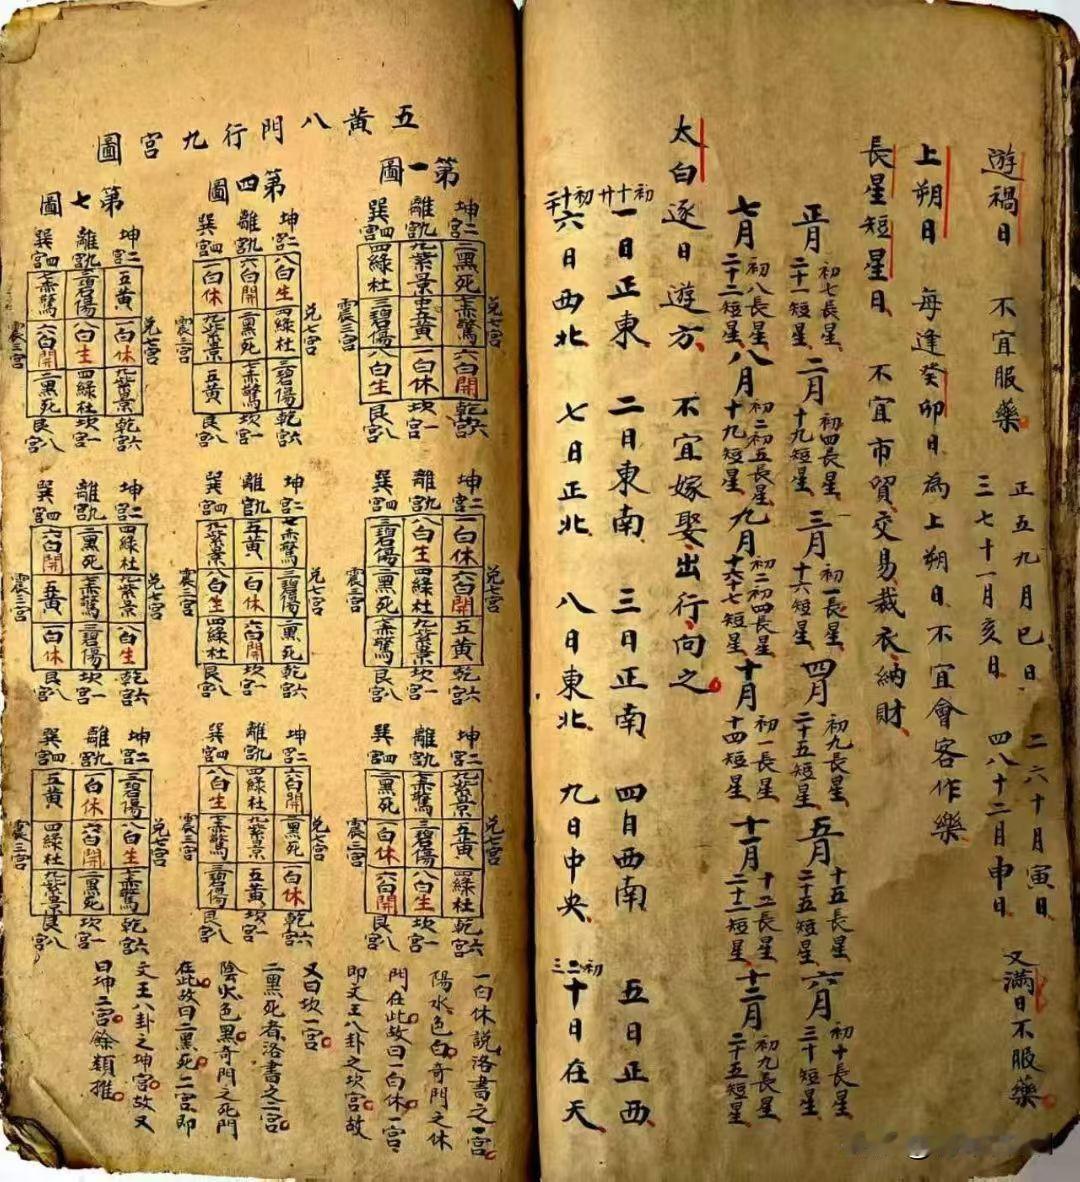 遊禍日 不宜服藥 正五九月巳日 三七十一月亥日 二六十月寅日 四八十二月申日 又滿日不服藥
上朔日 每逢癸卯日為上朔日不宜會客作樂
長星短星日 不宜市貿交易裁衣納財
正月 初七長星 二十一短星 二月 初四長星 十九短星 三月 初一長星 十六短星 四月 初九長星 二十五短星 五月 十五長星 二十五短星 六月 初十長星 三十短星
七月 初八長星 二十二短星 八月 初二初五長星 十九短星 九月 初二初四長星 十六七短星 十月 初一長星 十四短星 十一月 十二長星 二十二短星 十二月 初九長星 二十五短星
太白逐日遊方 不宜嫁娶出行向之
初十廿一日正東 二日東南 三日正南 四日西南 五日正西
六日西北 七日正北 八日東北 九日中央 初二三十日在天
五黃八門行九宮圖
第一圖
坤宮二 離宮九 巽宮四
二黑死 九紫景 四綠杜
兌七宮 七赤驚 中五黃 三碧傷 震三宮
六白開 一白休 八白生
乾宮六 坎宮一 艮宮八
第四圖
坤宮二 離宮九 巽宮四
八白生 六白開 一白休
兌七宮 四綠杜 二黑死 九紫景 震三宮
三碧傷 七赤驚 五黃
乾宮六 坎宮一 艮宮八
第七圖
坤宮二 離宮九 巽宮四
五黃 三碧傷 七赤驚
兌七宮 一白休 八白生 六白開 震三宮
九紫景 四綠杜 二黑死
乾宮六 坎宮一 艮宮八
坤宮二 離宮九 巽宮四
一白休 八白生 三碧傷
兌七宮 六白開 四綠杜 二黑死 震三宮
五黃 九紫景 七赤驚
乾宮六 坎宮一 艮宮八
坤宮二 離宮九 巽宮四
七赤驚 五黃 九紫景
兌七宮 三碧傷 一白休 八白生 震三宮
二黑死 六白開 四綠杜
乾宮六 坎宮一 艮宮八
坤宮二 離宮九 巽宮四
四綠杜 二黑死 六白開
兌七宮 九紫景 七赤驚 五黃 震三宮
八白生 三碧傷 一白休
乾宮六 坎宮一 艮宮八
坤宮二 離宮九 巽宮四
九紫景 七赤驚 二黑死
兌七宮 五黃 三碧傷 一白休 震三宮
四綠杜 八白生 六白開
乾宮六 坎宮一 艮宮八
坤宮二 離宮九 巽宮四
六白開 四綠杜 八白生
兌七宮 二黑死 九紫景 七赤驚 震三宮
一白休 五黃 三碧傷
乾宮六 坎宮一 艮宮八
坤宮二 離宮九 巽宮四
三碧傷 一白休 五黃
兌七宮 八白生 六白開 四綠杜 震三宮
七赤驚 二黑死 九紫景
乾宮六 坎宮一 艮宮八
一白休說洛書之一宮
陽水色白奇門之休
門在此故曰一白休一宮
即文王八卦之坎宮故
又曰坎一宮
二黑死者洛書之二宮
陰火色黑奇門之死門
在此故曰二黑死二宮即
文王八卦之坤宮故又
曰坤二宮餘類推